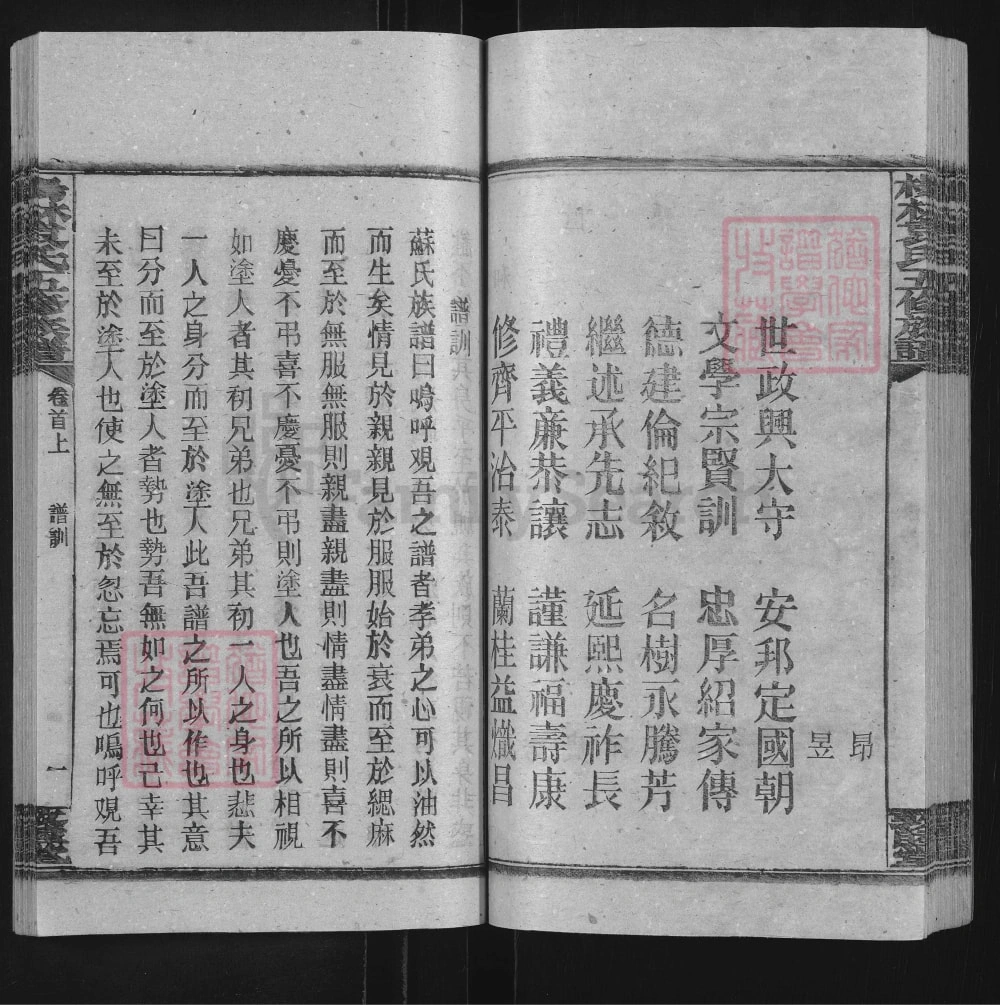 昂
昱
世政興太守 安邦定國朝
文學宗賢訓 忠厚紹家傳
德建倫紀敘 名樹永騰芳
繼述承先志 延熙慶祚長
禮義廉恭讓 謹謙福壽康
修齊平治泰 蘭桂益熾昌
譜訓
蘇氏族譜曰嗚呼觀吾之譜者孝弟之心可以油然
而生矣情見於親親見於服服始於衰而至於緦麻
而至於無服無服則親盡親盡則情盡情盡則喜不
慶憂不弔喜不慶憂不弔則塗人也吾之所以相視
如塗人者其初兄弟也兄弟其初一人之身也悲夫
一人之身分而至於塗人此吾譜之所以作也其意
曰分而至於塗人者勢也勢吾無如之何也已幸其
未至於塗人也使之無至於忽忘焉可也嗚呼觀吾
卷首上 譜訓 一